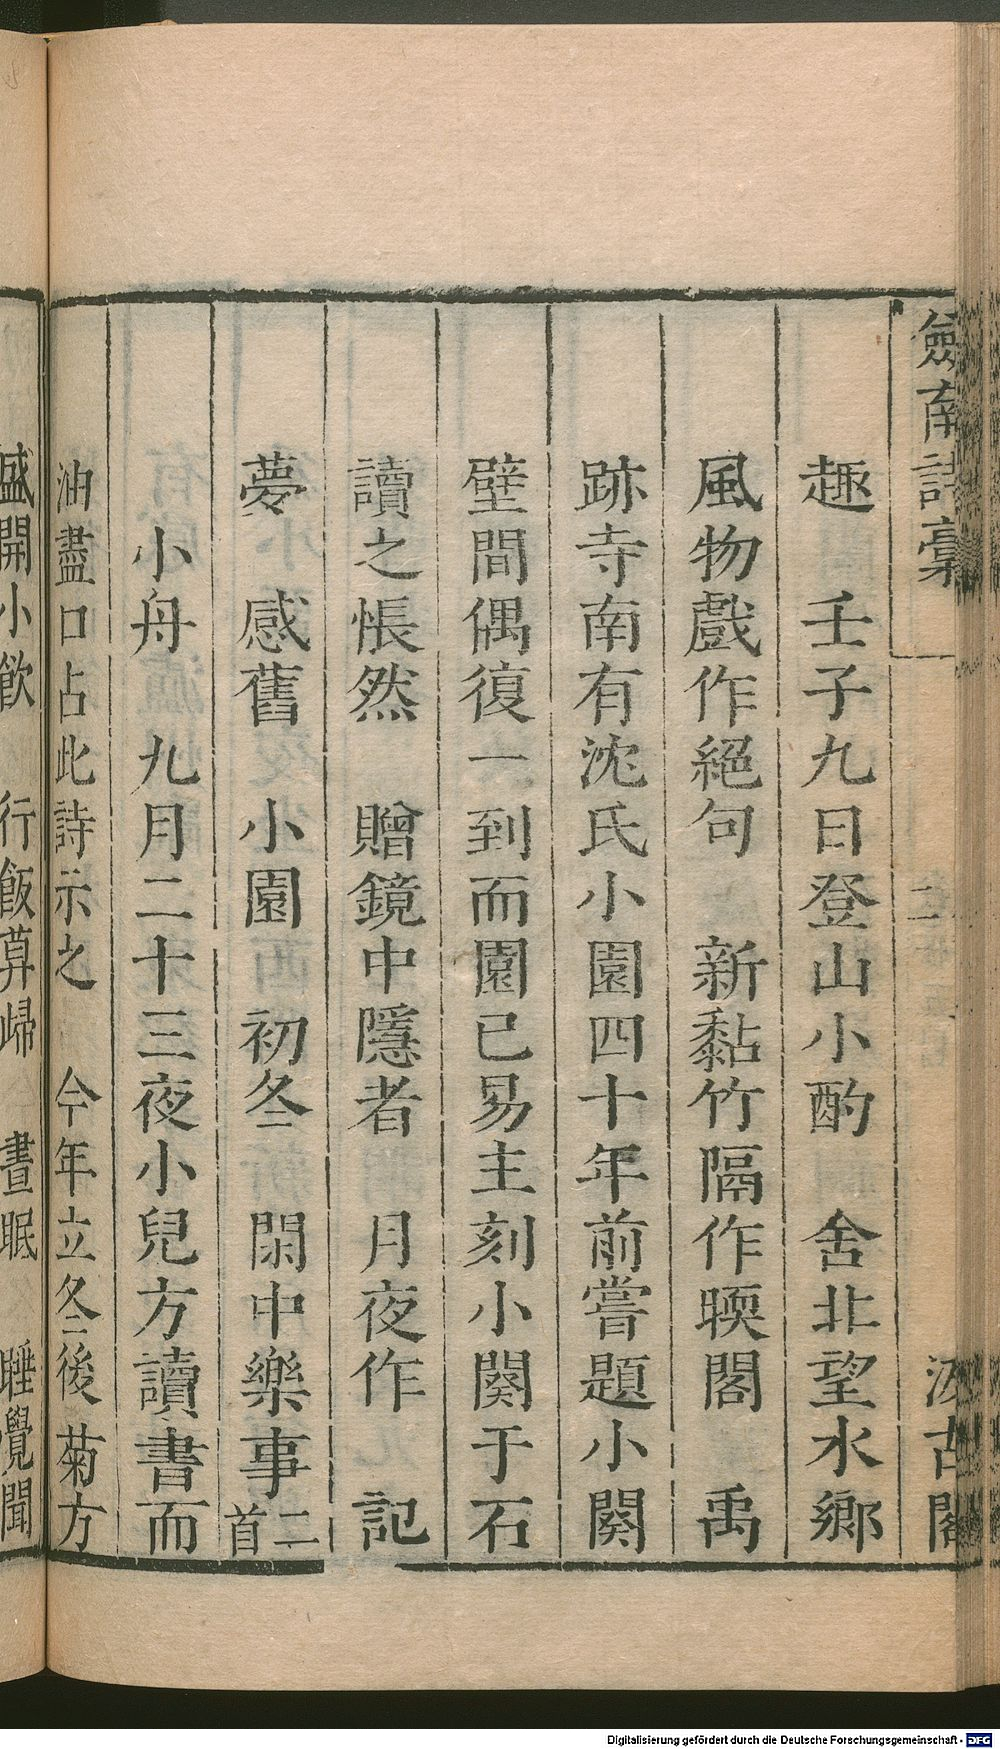 劍南詩稾
二
汲古閣
趣　壬子九日登山小酌　舍北望水鄉
風物戲作絕句　新黏竹隔作暎閣　禹
跡寺南有沈氏小園四十年前嘗題小闋
壁間偶復一到而園已易主刻小闋于石
讀之悵然　贈鏡中隱者　月夜作　記
夢　感舊　小園　初冬　閑中樂事二首
小舟　九月二十三夜小兒方讀書而
油盡口占此詩示之　今年立冬後菊方
盛開小飲　行飯暮歸　晝眠　睡覺聞
Digitalisierung gefördert durch die Deutsche Forschungsgemeinschaft - DFG